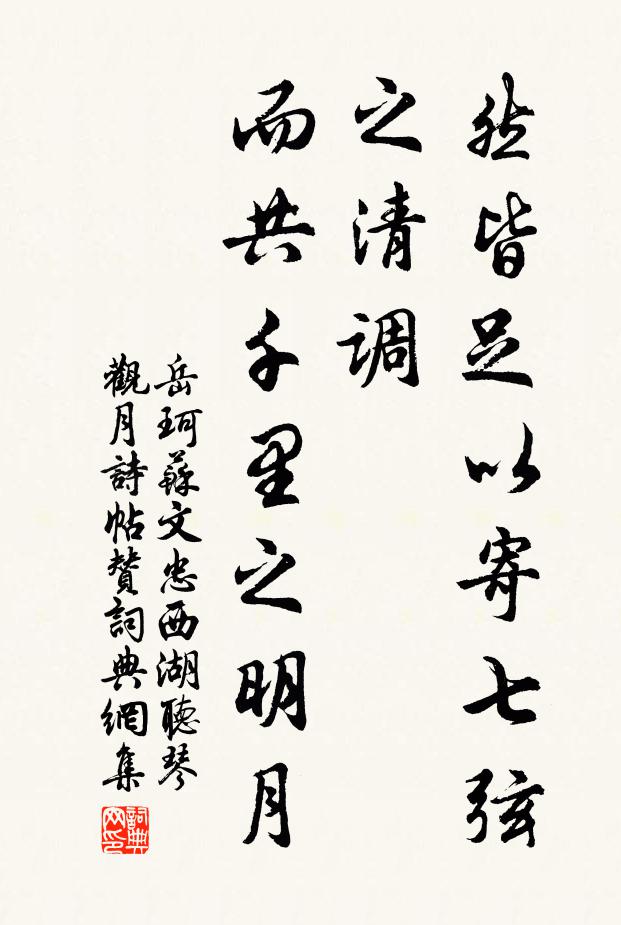 然皆足以寄七弦
之清調
而共千里之明月
岳珂蘇文忠西湖聽琴
觀月詩帖贊詞典網集
詞典
网印